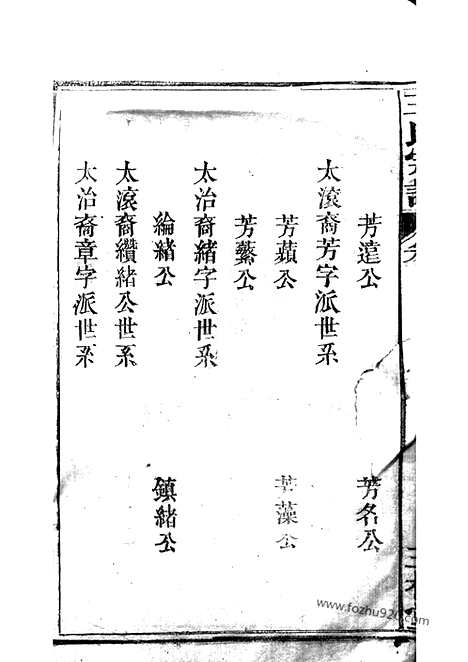 芳遠公 芳名公
太滾裔芳字派世系
芳蘋公 芳藻公
芳蘩公
太治裔緒字派世系
綸緒公 鎮緒公
太滾裔纘緒公世系
太治裔章字派世系
www.fozhu920.com